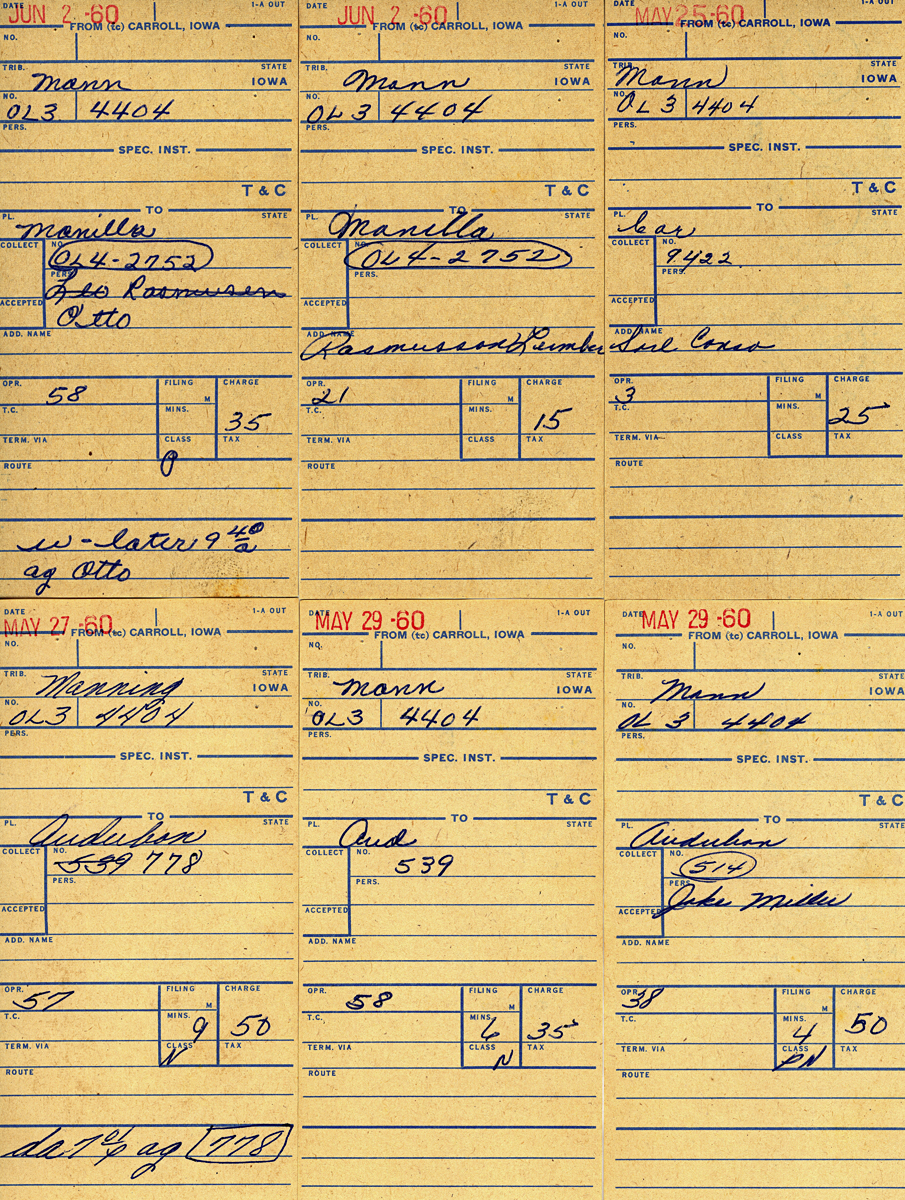 DATE JUN 2 -60 1-A OUT
FROM (tc) CARROLL, IOWA
NO.
TRIB. STATE
Mann IOWA
NO.
OL3 4404
PERS.
SPEC. INST.
T & C
TO
PL. STATE
Manilla
COLLECT NO.
OL4-2752
PERS.
Leo Rasmusen
ACCEPTED Otto
ADD. NAME
OPR. 58 FILING M CHARGE
T.C. MINS. 35
TERM. VIA CLASS P TAX
ROUTE
w - later 9 40 a
ag Otto
DATE JUN 2 -60 1-A OUT
FROM (tc) CARROLL, IOWA
NO.
TRIB. STATE
Mann IOWA
NO.
OL 3 4404
PERS.
SPEC. INST.
T & C
TO
PL. STATE
Manilla
COLLECT NO.
OL4-2752
PERS.
ACCEPTED
ADD. NAME
Rasmusson Lumber
OPR. 21 FILING M CHARGE
T.C. MINS. 15
TERM. VIA CLASS TAX
ROUTE
DATE MAY 25-60 1-A OUT
FROM (tc) CARROLL, IOWA
NO.
TRIB. STATE
Mann IOWA
NO.
OL 3 4404
PERS.
SPEC. INST.
T & C
TO
PL. STATE
Car
COLLECT NO.
9422
PERS.
ACCEPTED
ADD. NAME
Soil Conso
OPR. 3 FILING M CHARGE
T.C. MINS. 25
TERM. VIA CLASS TAX
ROUTE
DATE MAY 27 -60 1-A OUT
FROM (tc) CARROLL, IOWA
NO.
TRIB. STATE
Manning IOWA
NO.
OL3 4404
PERS.
SPEC. INST.
T & C
TO
PL. STATE
Audubon
COLLECT NO.
539 778
PERS.
ACCEPTED
ADD. NAME
OPR. 57 FILING M CHARGE
T.C. MINS. 9 50
TERM. VIA CLASS N TAX
ROUTE
da ag 778
DATE MAY 29 -60 1-A OUT
FROM (tc) CARROLL, IOWA
NO.
TRIB. STATE
Mann IOWA
NO.
OL3 4404
PERS.
SPEC. INST.
T & C
TO
PL. STATE
Aud
COLLECT NO.
539
PERS.
ACCEPTED
ADD. NAME
OPR. 58 FILING M CHARGE
T.C. MINS. 6 35
TERM. VIA CLASS N TAX
ROUTE
DATE MAY 29 -60 1-A OUT
FROM (tc) CARROLL, IOWA
NO.
TRIB. STATE
Mann IOWA
NO.
OL 3 4404
PERS.
SPEC. INST.
T & C
TO
PL. STATE
Audubon
COLLECT NO.
514
PERS.
Jake Miller
ACCEPTED
ADD. NAME
OPR. 38 FILING M CHARGE
T.C. MINS. 4 50
TERM. VIA CLASS PN TAX
ROUTE